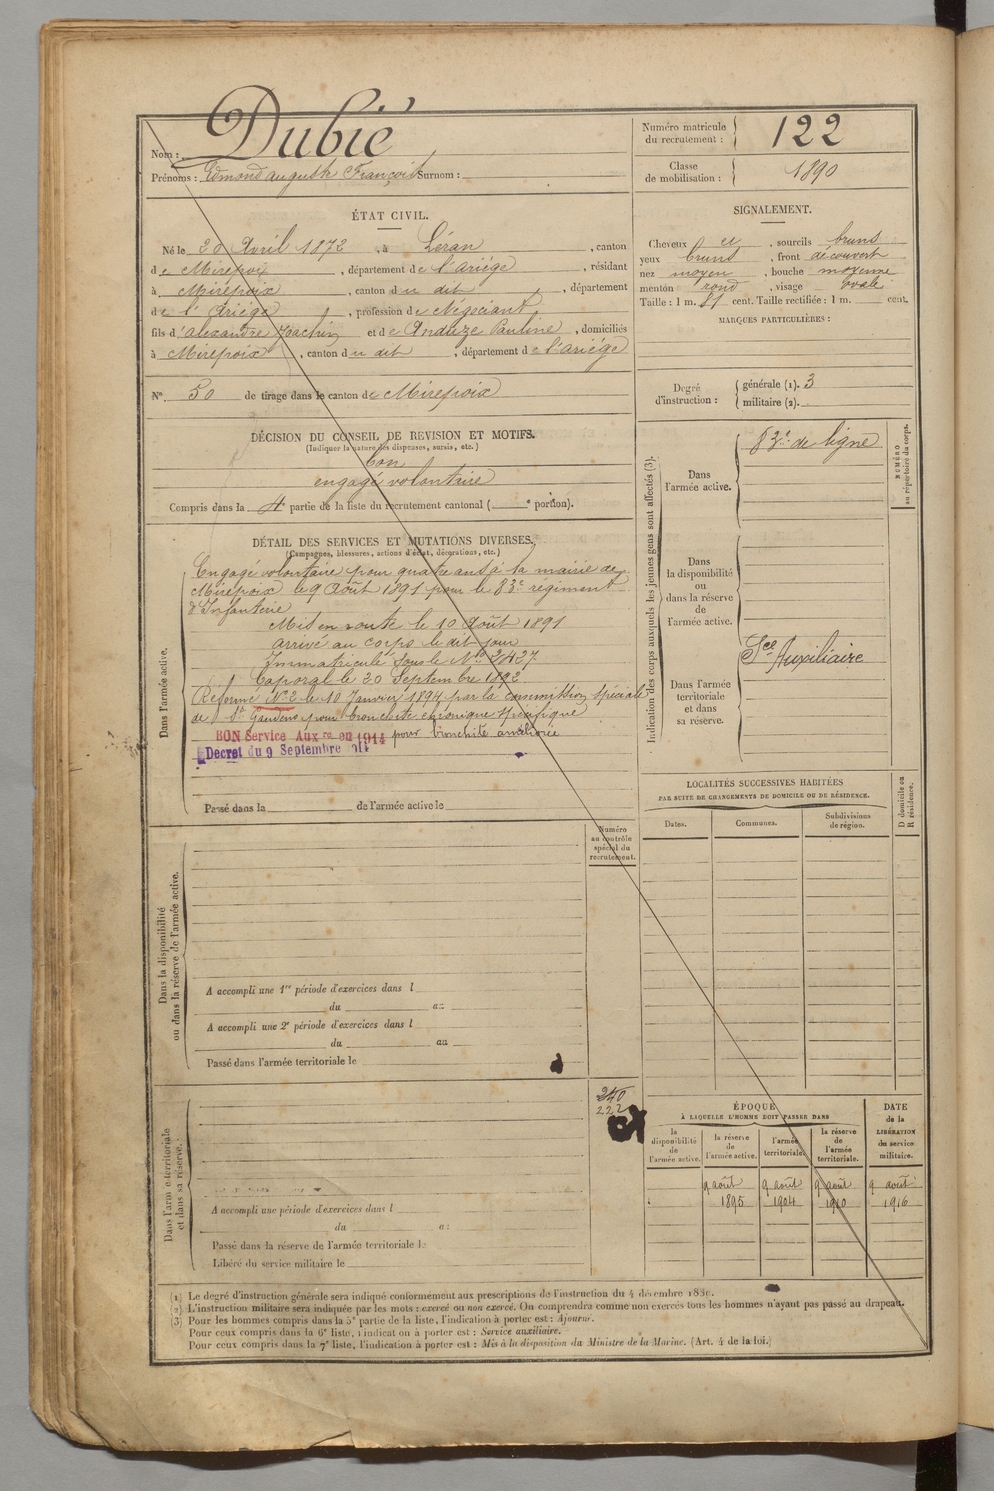 Nom : Dubié
Prénoms : Edmond auguste François Surnom :
ÉTAT CIVIL.
Né le 20 Avril 1872, à Léran, canton
de Mirepoix, département de l'ariége, résidant
à Mirepoix, canton du dit, département
de l'Ariége, profession de Négociant
fils d'alexandre Joachin et de Anduze Pauline, domiciliés
à Mirepoix, canton du dit, département de l'ariége
N° 50 de tirage dans le canton de Mirepoix
DÉCISION DU CONSEIL DE REVISION ET MOTIFS.
(Indiquer la nature des dispenses, sursis, etc.)
bon
engagé volontaire
Compris dans la 4e partie de la liste du recrutement cantonal ( e portion).
DÉTAIL DES SERVICES ET MUTATIONS DIVERSES.
(Campagnes, blessures, actions d'éclat, décorations, etc.)
Dans l'armée active.
Engagé volontaire pour quatre ans à la mairie de
Mirepoix le 9 Août 1891 pour le 83e régiment
d'Infanterie
Mis en route le 10 Août 1891
arrivé au corps le dit jour
Immatriculé sous le No 3427
Caporal le 20 Septembre 1892
Réformé No 2 le 10 Janvier 1894 par la commission spéciale
de St Gaudens pour bronchite chronique spécifique
BON Service Auxre en 1914 pour bronchite améliorée
Decret du 9 Septembre 1914
Passé dans la de l'armée active le
Numéro
au contrôle
spécial du
recrutement.
Dans la disponibilité
ou dans la réserve de l'armée active.
A accompli une 1re période d'exercices dans l
du au
A accompli une 2e période d'exercices dans l
du au
Passé dans l'armée territoriale le
340
222
Dans l'armée territoriale
et dans sa réserve.
A accompli une période d'exercices dans l
du au
Passé dans la réserve de l'armée territoriale le
Libéré du service militaire le
Numéro matricule
du recrutement : 122
Classe
de mobilisation : 1890
SIGNALEMENT.
Cheveux et, sourcils bruns
yeux bruns, front découvert
nez moyen, bouche moyenne
menton rond, visage ovale
Taille : 1 m. 81 cent. Taille rectifiée : 1 m. cent.
MARQUES PARTICULIÈRES :
Degré
d'instruction :
générale (1). 3
militaire (2).
Indication des corps auxquels les jeunes gens sont affectés (3).
NUMÉRO
au répertoire du corps.
Dans
l'armée active.
83e de ligne
Dans
la disponibilité
ou
dans la réserve
de
l'armée active.
Sce Auxiliaire
Dans l'armée
territoriale
et dans
sa réserve.
LOCALITÉS SUCCESSIVES HABITÉES
PAR SUITE DE CHANGEMENTS DE DOMICILE OU DE RÉSIDENCE.
D domicile ou
R résidence.
Dates. Communes. Subdivisions
de région.
ÉPOQUE
À LAQUELLE L'HOMME DOIT PASSER DANS
DATE
de la
LIBÉRATION
du service
militaire.
la
disponibilité
de
l'armée active.
la réserve
de
l'armée active.
l'armée
territoriale.
la réserve
de
l'armée
territoriale.
9 août 9 août 9 août 9 août
1895 1904 1910 1916
(1) Le degré d'instruction générale sera indiqué conformément aux prescriptions de l'instruction du 4 décembre 1889.
(2) L'instruction militaire sera indiquée par les mots : exercé ou non exercé. On comprendra comme non exercés tous les hommes n'ayant pas passé au drapeau.
(3) Pour les hommes compris dans la 5e partie de la liste, l'indication à porter est : Ajourné.
Pour ceux compris dans la 6e liste, l'indication à porter est : Service auxiliaire.
Pour ceux compris dans la 7e liste, l'indication à porter est : Mis à la disposition du Ministre de la Marine. (Art. 4 de la loi.)